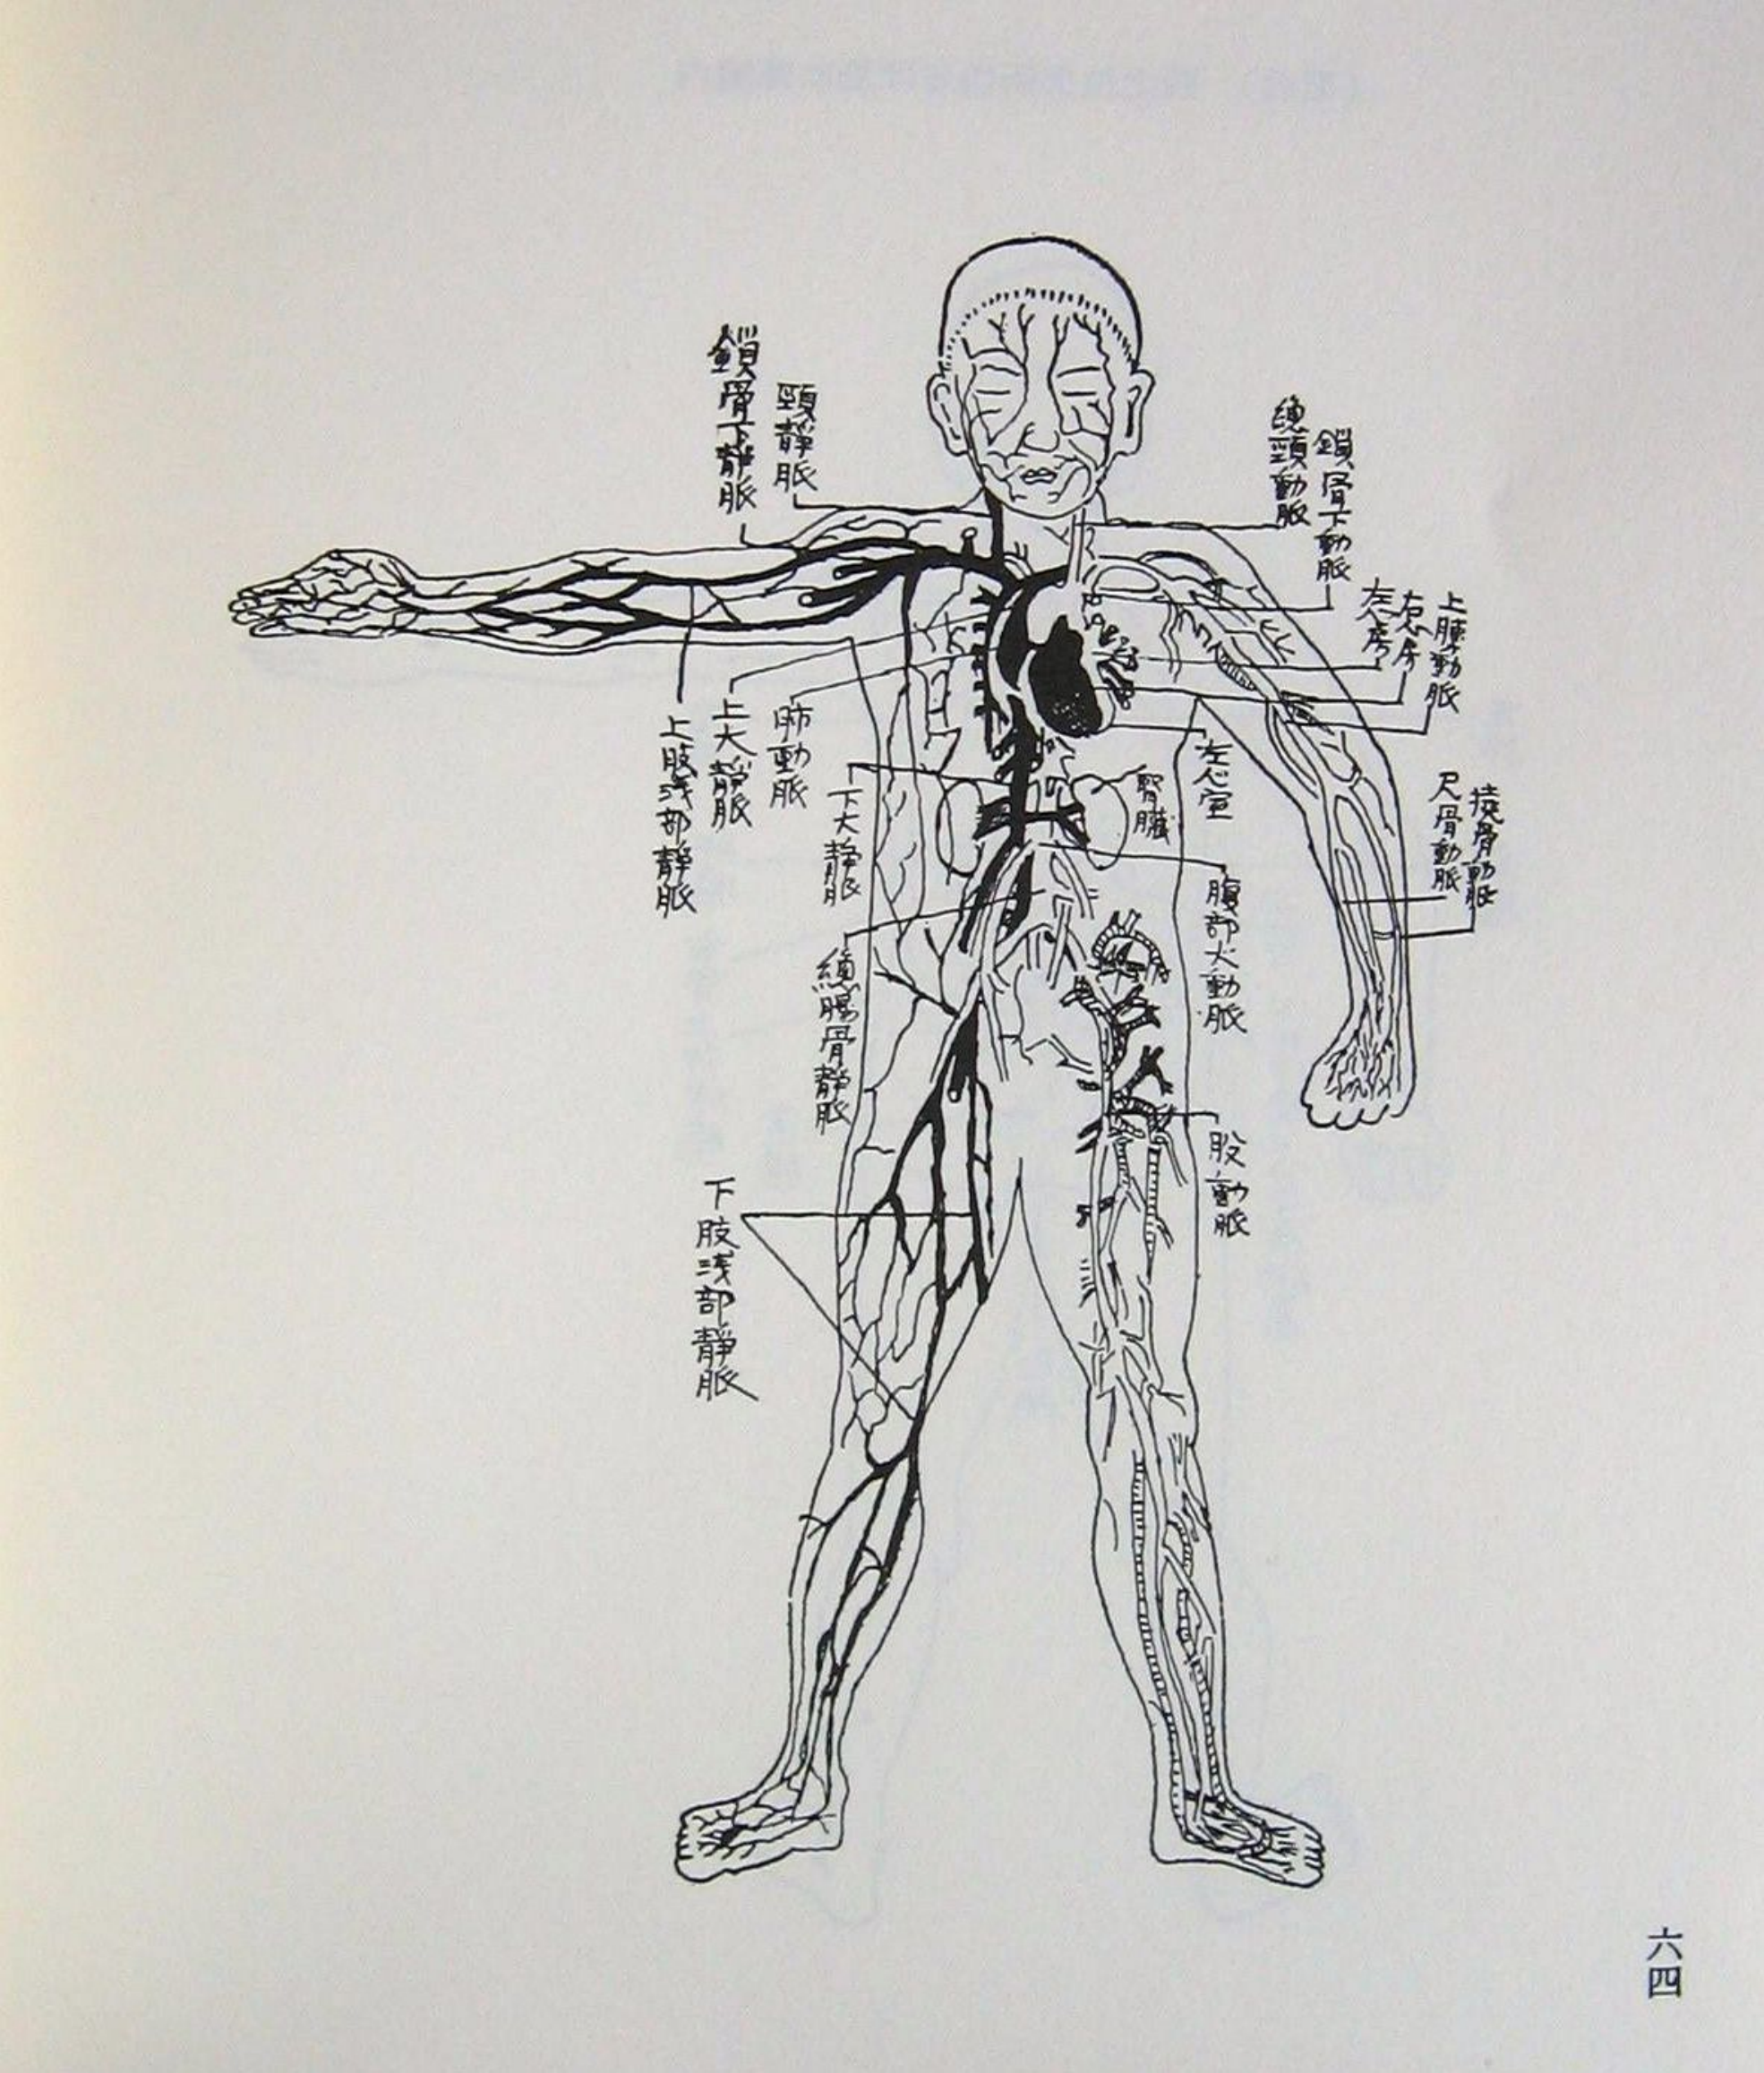 鎖骨下靜脈
頸靜脈
總頸動脈
鎖骨下動脈
左心房
右心房
上腫動脈
上肢浅部靜脈
上大靜脈
肺動脈
下大靜脈
腎臓
左心室
尺骨動脈
撓骨動脈
腹部大動脈
總腸骨靜脈
股動脈
下肢浅部靜脈
六四